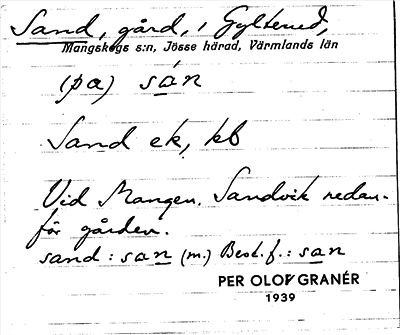 Sand, gård, i Gyltened,
Mangskogs s:n, Jösse härad, Värmlands län
(pa) sàn
Sand ek, kb
Vid Mangen. Sandvik nedan-
för gården.
sand : san (m.) Best. f. : san
PER OLOF GRANÉR
1939